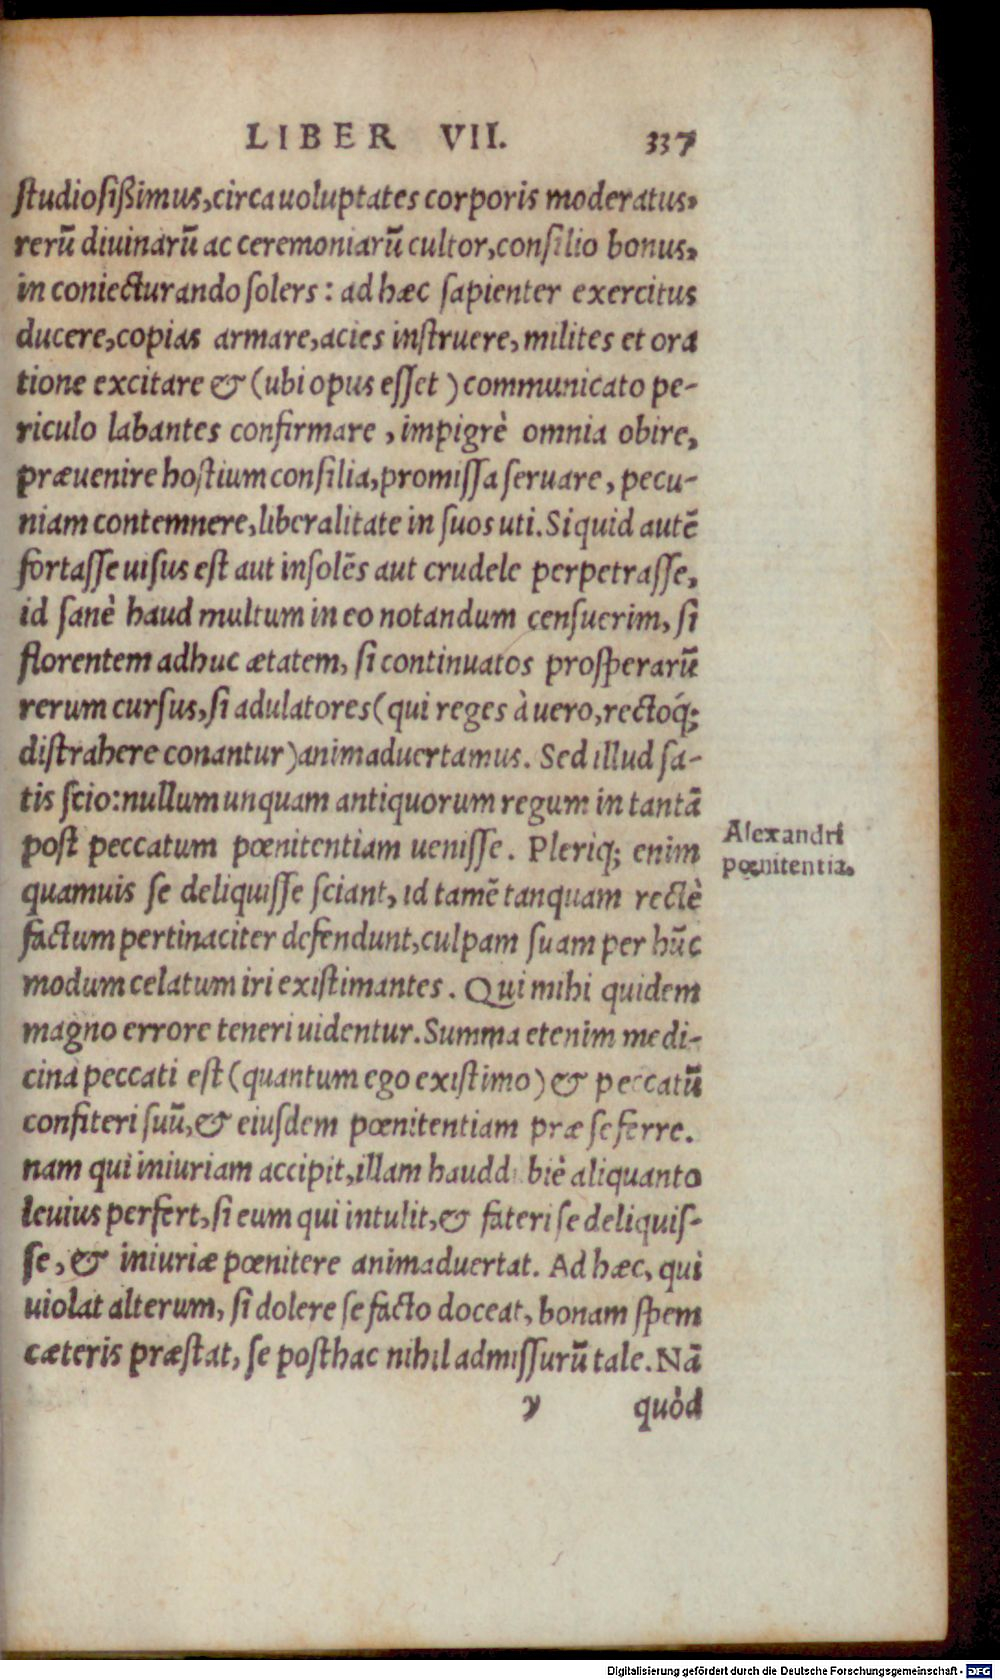 LIBER VII. 337
studiosißimus, circa uoluptates corporis moderatus,
rerū diuinarū ac ceremoniarū cultor, consilio bonus,
in coniecturando solers: ad hæc sapienter exercitus
ducere, copias armare, acies instruere, milites et ora
tione excitare & (ubi opus esset) communicato pe-
riculo labantes confirmare, impigrè omnia obire,
præuenire hostium consilia, promissa seruare, pecu-
niam contemnere, liberalitate in suos uti. Si quid autē
fortasse uisus est aut insolēs aut crudele perpetrasse,
id sanè haud multum in eo notandum censuerim, si
florentem adhuc ætatem, si continuatos prosperarū
rerum cursus, si adulatores (qui reges à uero, rectoq́;
distrahere conantur) animaduertamus. Sed illud sa-
tis scio: nullum unquam antiquorum regum in tantā
post peccatum pœnitentiam uenisse. Pleriq; enim
quamuis se deliquisse sciant, id tamē tanquam rectè
factum pertinaciter defendunt, culpam suam per hūc
modum celatum iri existimantes. Qui mihi quidem
magno errore teneri uidentur. Summa etenim medi-
cina peccati est (quantum ego existimo) & peccatū
confiteri suū, & eiusdem pœnitentiam præ se ferre.
nam qui iniuriam accipit, illam haud d biè aliquanto
leuius perfert, si eum qui intulit, & fateri se deliquis-
se, & iniuriæ pœnitere animaduertat. Ad hæc, qui
uiolat alterum, si dolere se facto doceat, bonam spem
cæteris præstat, se posthac nihil admissurū tale. Nā
y quòd
Alexandri
pœnitentia.
Digitalisierung gefördert durch die Deutsche Forschungsgemeinschaft - DFG